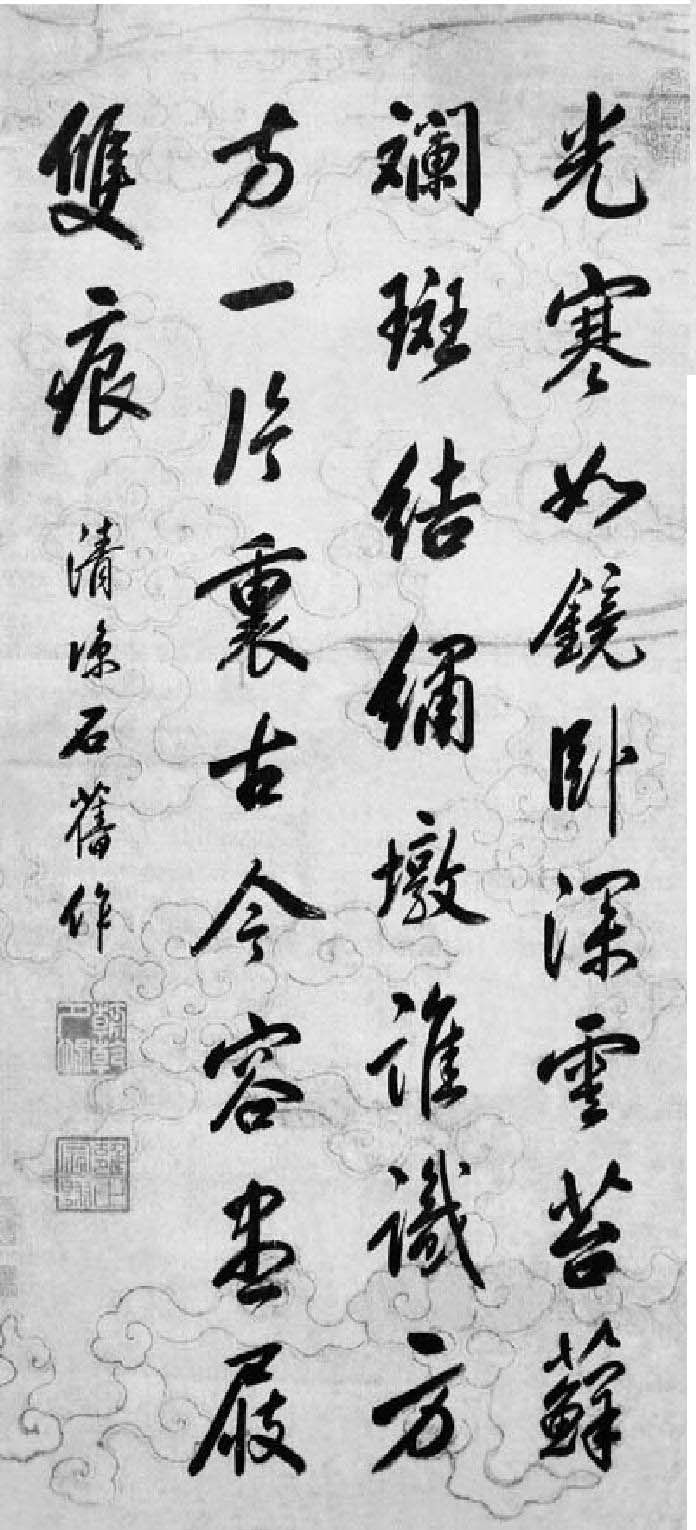 光寒如鏡卧深雲苔蘚
斕斑結繡墩誰識方
方一片裏古今容盡屐
雙痕
清涼石舊作